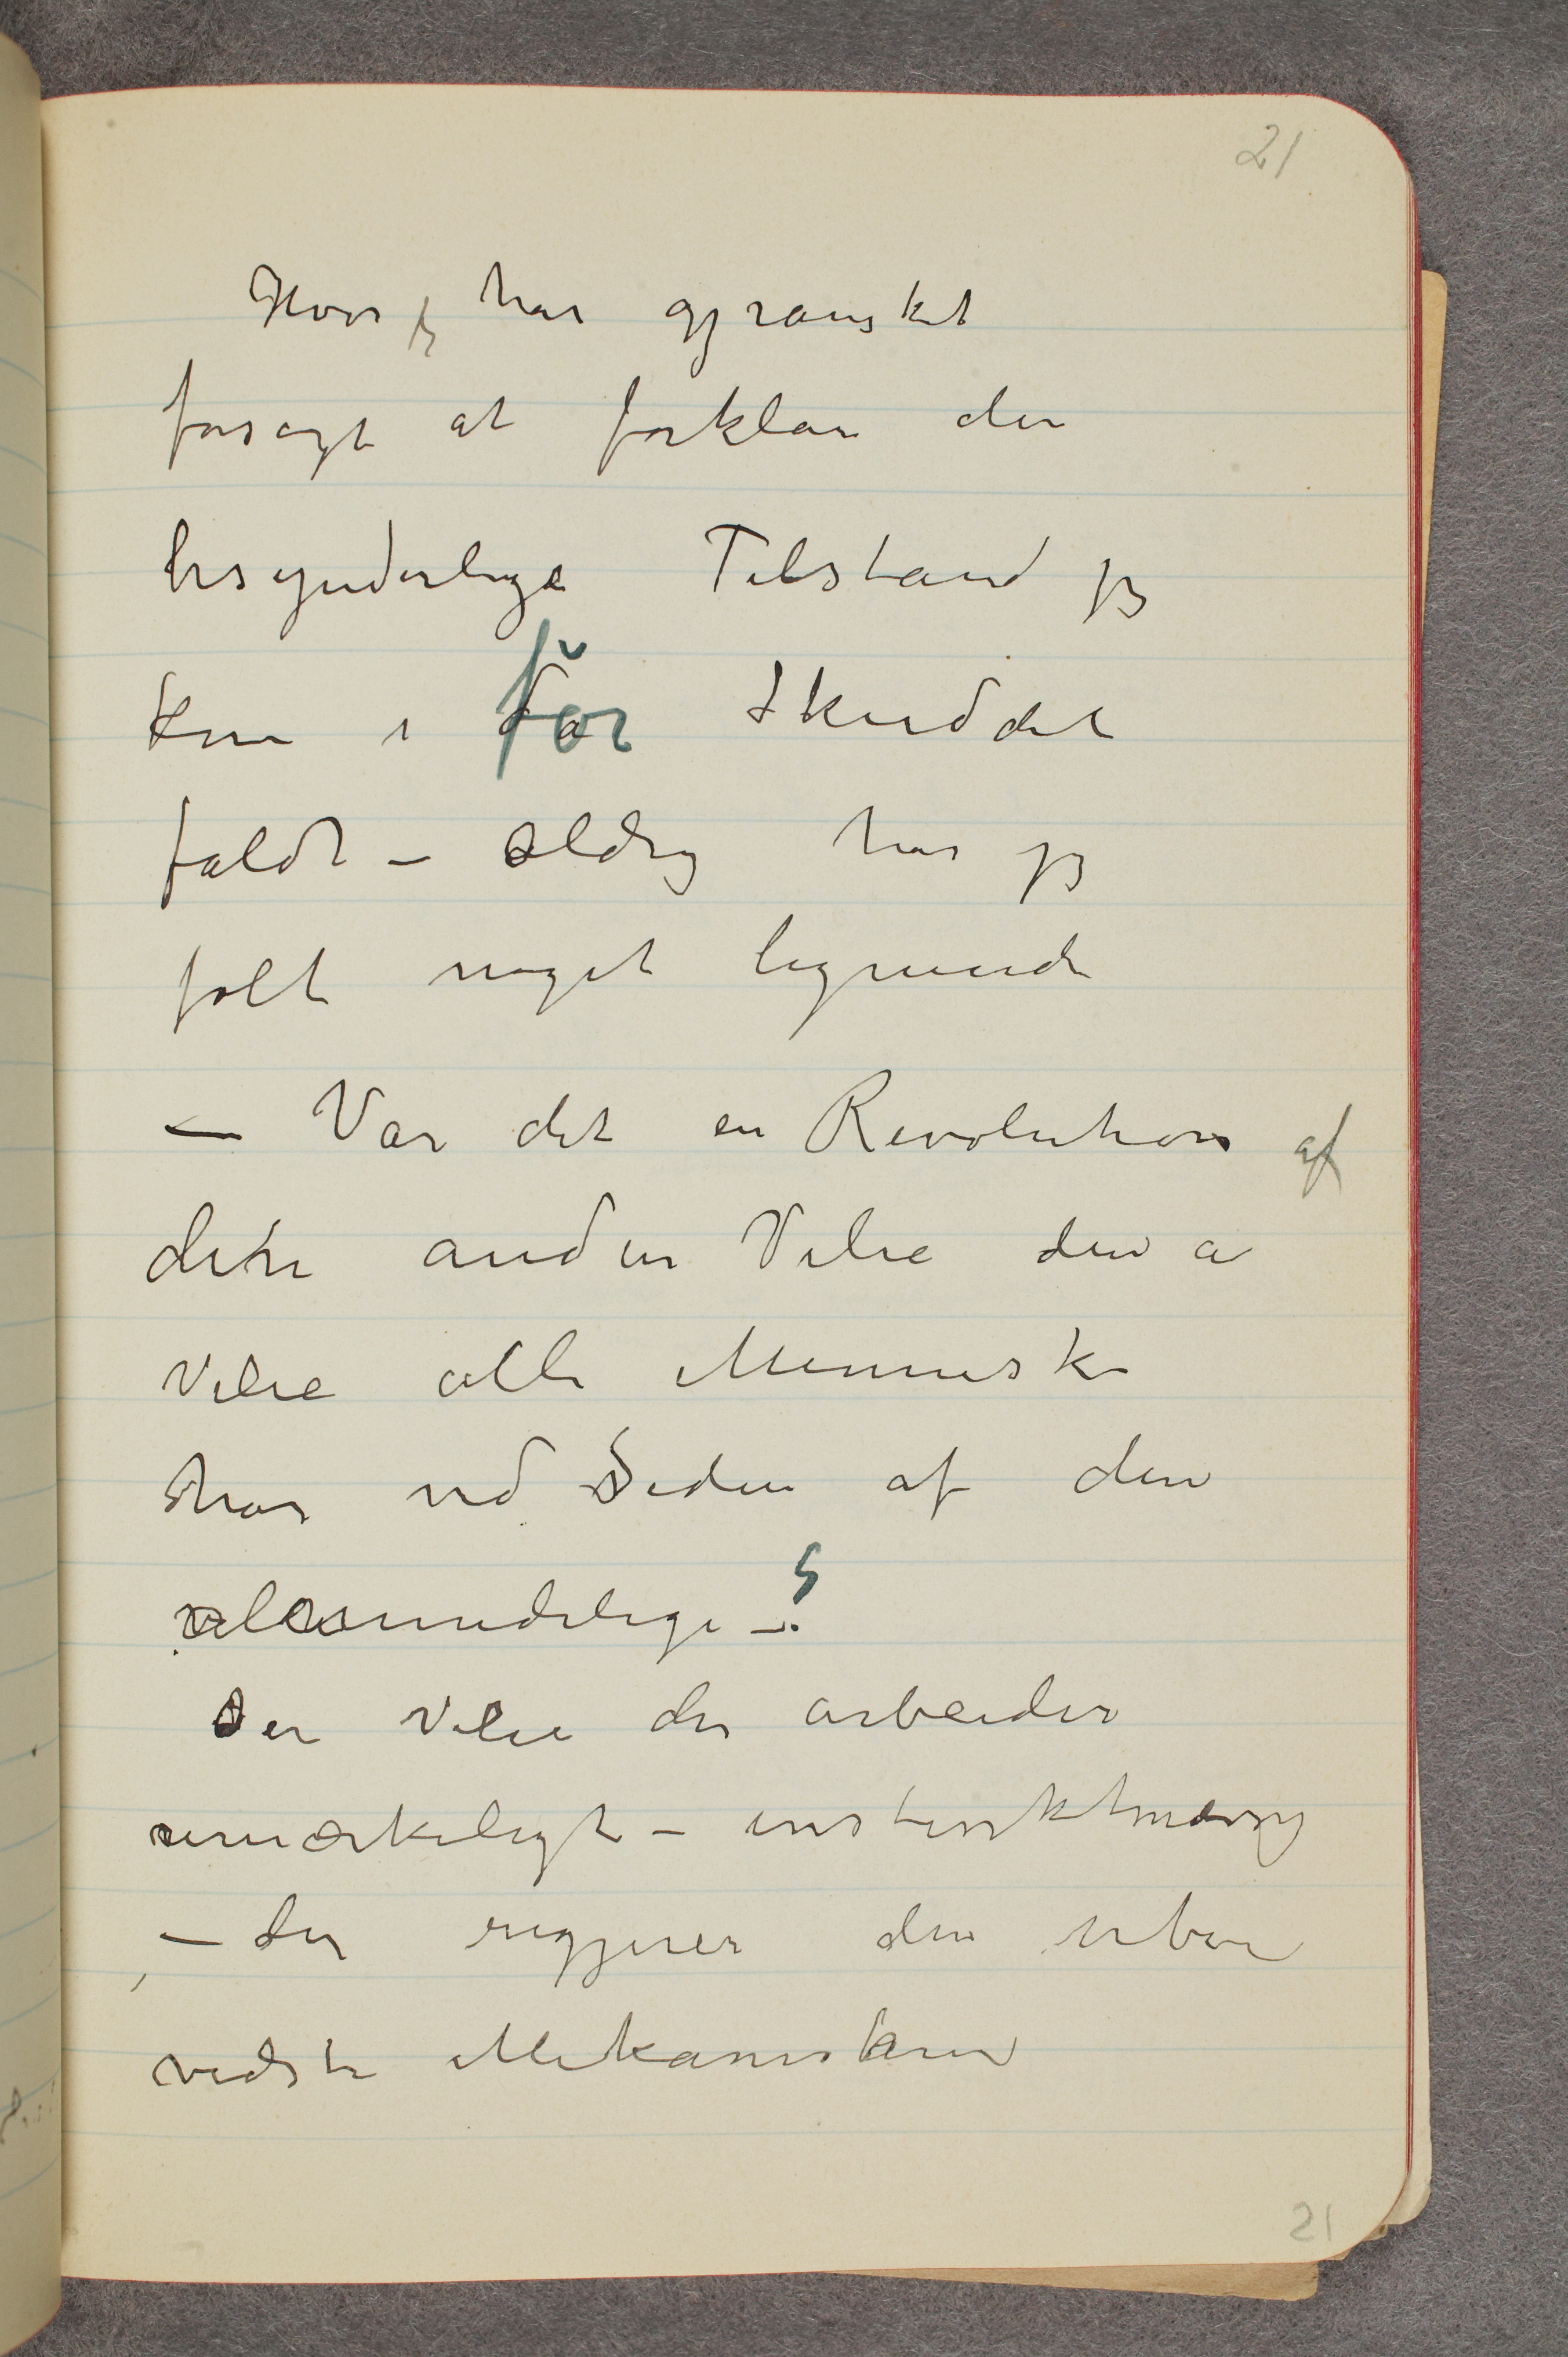 21
Hvor jeg har gjransket
forsøgt at forklare den
besynderlige Tilstand jeg
kom i før Skuddet
faldt – aldrig har jeg
følt noget lignende
– Var det en Revolution af
den anden Vilie den
Vilie alle Menneske
har ved Siden af den
almindelige –?
Den Vilie der arbeider
umærkeligt – instinktmæsig
– der regjerer den ube
vidste Mekanisme
21